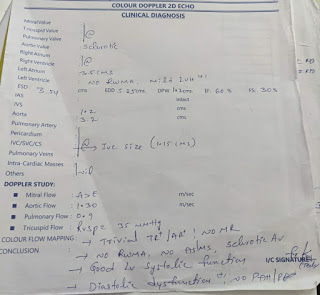 COLOUR DOPPLER 2D ECHO
CLINICAL DIAGNOSIS
Mitral Valve
Tricuspid Valve
Pulmonary Valve
Aortic Valve sclerotic
Right Atrium
Right Ventricle
Left Atrium 3.5 cms
Left Ventricle NO RWMA, mild LVH
ESD 3.54 cms EDD 5.25 cms cms EF 60% FS 30%
IAS intact
IVS 1.2 cms
Aorta 3.2 cms
Pulmonary Artery
Pericardium
IVC/SVC/CS IVC size (1.15 cms)
Pulmonary Veins
Intra-Cardiac Masses
Others Nil
DOPPLER STUDY:
Mitral Flow : A>E m/sec
Aortic Flow : 1.30 m/sec
Pulmonary Flow : 0.9
Tricuspid Flow : RVSP = 35 mmHg
COLOUR FLOW MAPPING : → Trivial TR / AR NO MR
CONCLUSION → NO RWMA, NO ASMS, sclerotic AV.
→ Good LV systolic function I/C SIGNATURE
→ Diastolic dysfunction NO PAH/PE